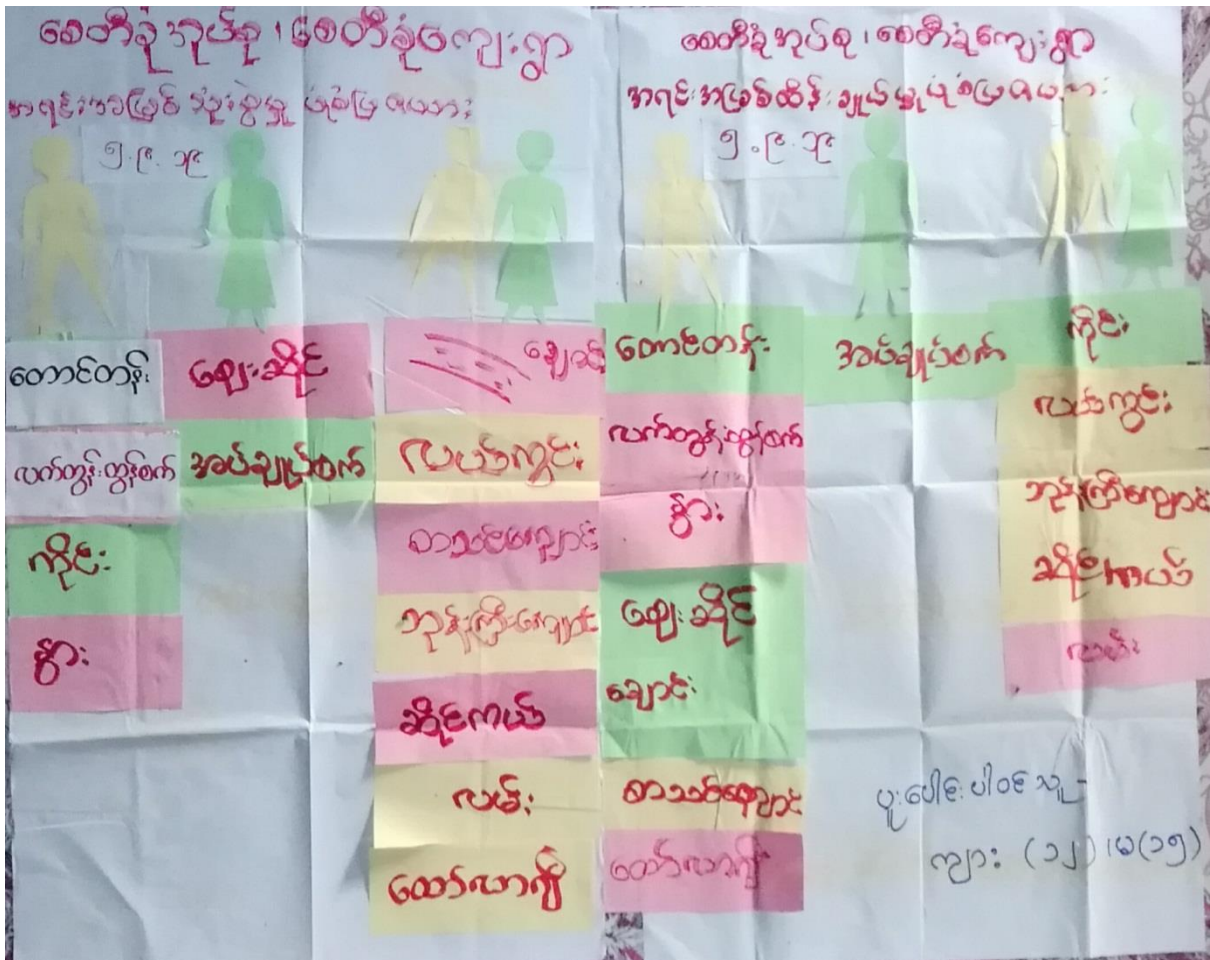 စေတီခုံအုပ်စု၊ စေတီခုံကျေးရွာ
အရင်းအမြစ် သုံးစွဲမှု ပုံစံပြ ဇယား
၅.၉.၁၉
တောင်တန်း
လက်တွန်းထွန်စက်
ကိုင်း
နွား
ဈေးဆိုင်
အပ်ချုပ်စက်
ချောင်း
လယ်ကွင်း
စာသင်ကျောင်း
ဘုန်းကြီးကျောင်း
ဆိုင်ကယ်
လမ်း
ထော်လာဂျီ
စေတီခုံအုပ်စု၊ စေတီခုံကျေးရွာ
အရင်းအမြစ်ထိန်းချုပ်မှုပုံစံပြဇယား
၅.၉.၁၉
တောင်တန်း
လက်တွန်းထွန်စက်
နွား
ဈေးဆိုင်
ချောင်း
စာသင်ကျောင်း
ထော်လာဂျီ
အပ်ချုပ်စက်
ကိုင်း
လယ်ကွင်း
ဘုန်းကြီးကျောင်း
ဆိုင်ကယ်
လမ်း
ပူးပေါင်းပါဝင်သူ-
ကျား (၁၂)၊ မ(၁၅)